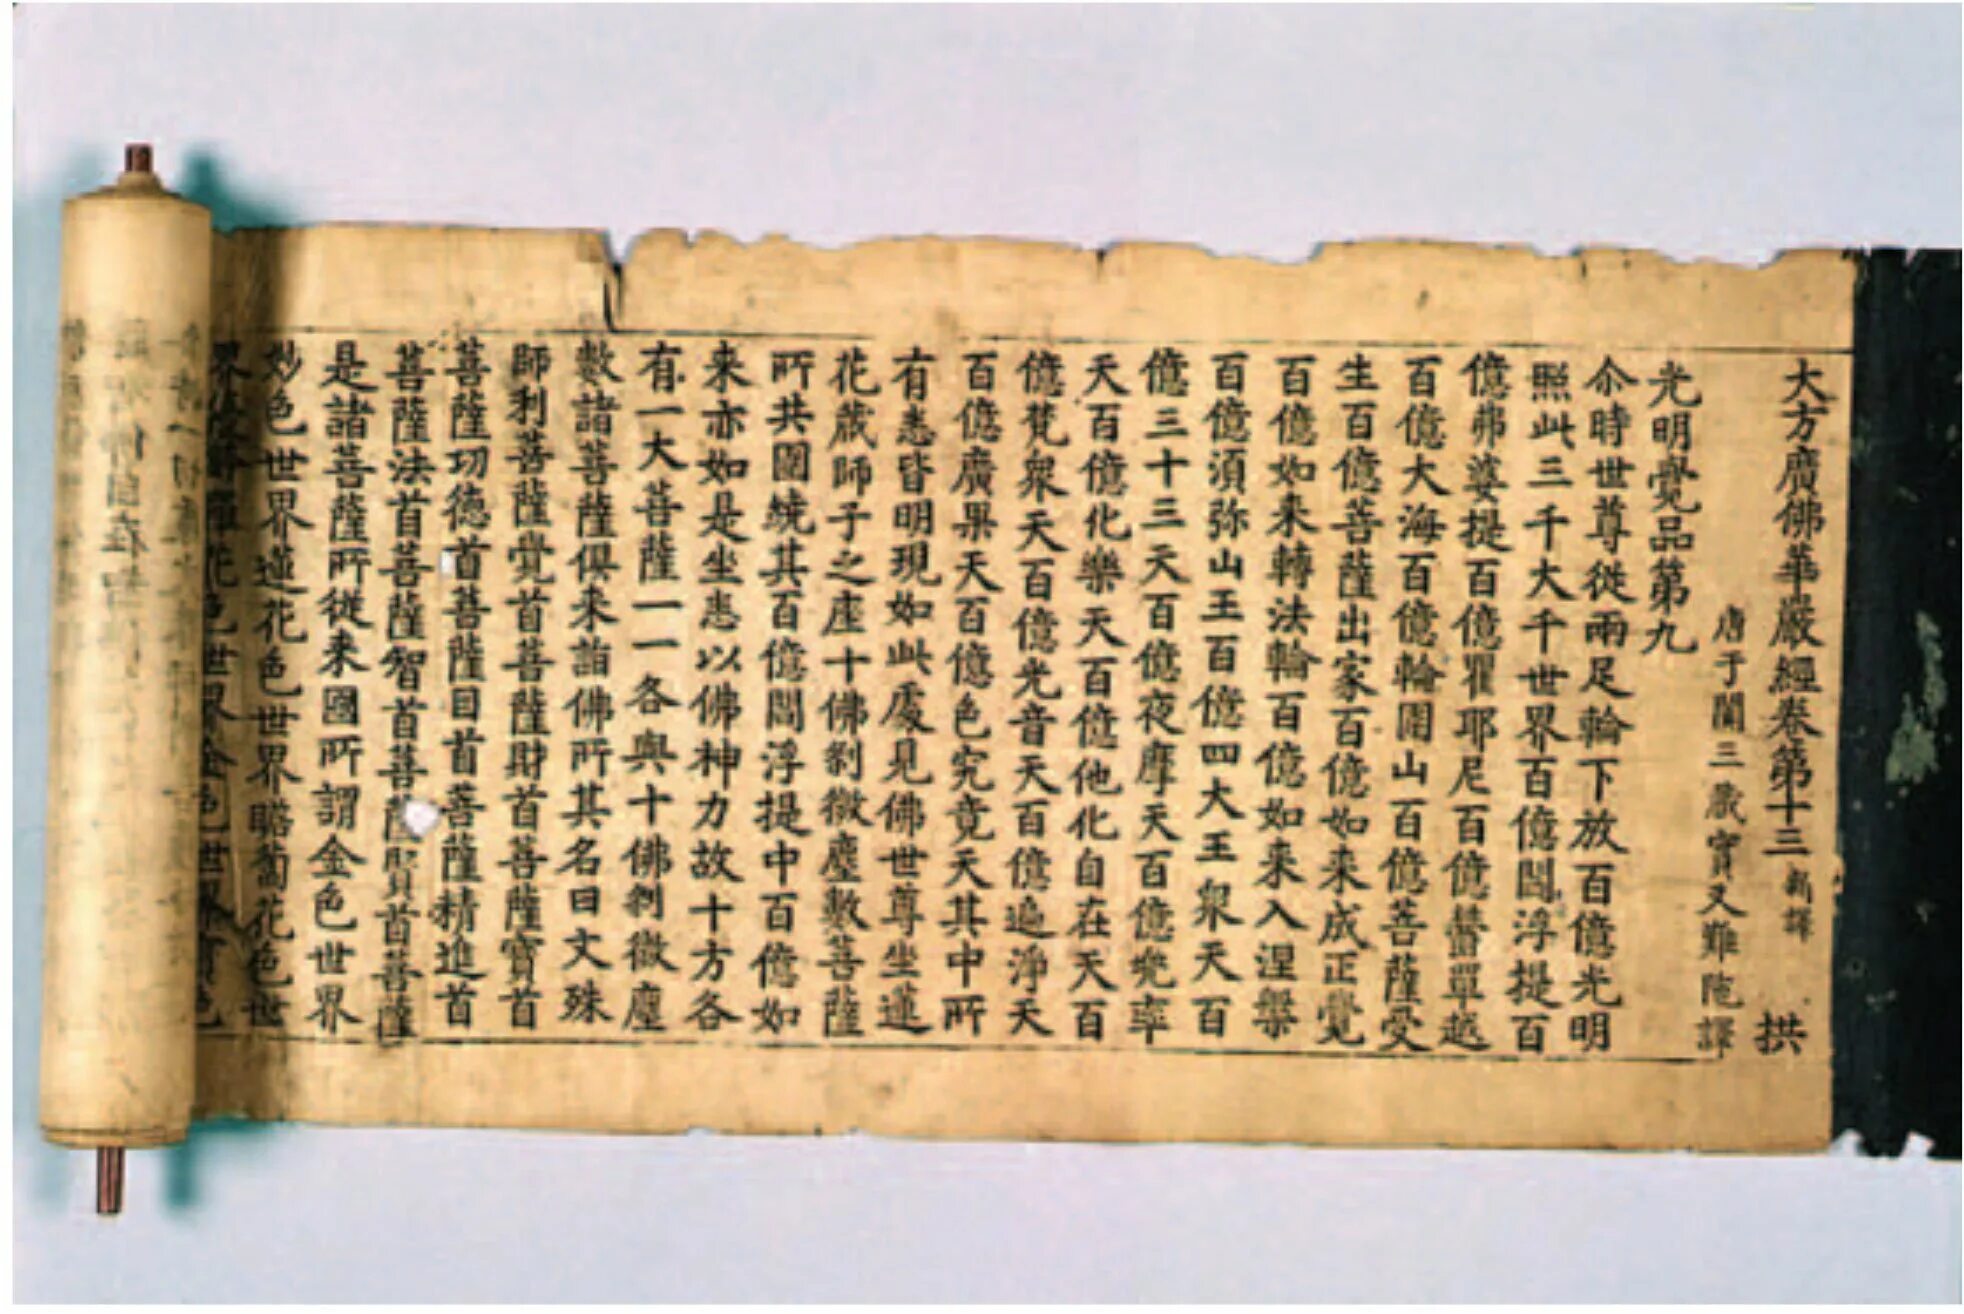 大方廣佛華嚴經卷第十三 新譯 拱
唐于闐三藏實叉難陁譯
光明覺品第九
尒時世尊從兩足輪下放百億光明
照此三千大千世界百億閻浮提百
億弗婆提百億瞿耶尼百億欝單越
百億大海百億輪圍山百億菩薩受
生百億菩薩出家百億如来成正覺
百億如来轉法輪百億如来入涅槃
百億湏弥山王百億四大王衆天百
億三十三天百億夜摩天百億兜率
天百億化樂天百億他化自在天百
億梵衆天百億光音天百億遍淨天
百億廣果天百億色究竟天其中所
有悉皆明現如此處見佛世尊坐蓮
花蔵師子之座十佛剎微塵數菩薩
所共圍繞其百億閻浮提中百億如
来亦如是坐悉以佛神力故十方各
有一大菩薩一一各與十佛剎微塵
數諸菩薩俱来詣佛所其名曰文殊
師利菩薩覺首菩薩財首菩薩寶首
菩薩功德首菩薩目首菩薩精進首
菩薩法首菩薩智首菩薩賢首菩薩
是諸菩薩所從来國所謂金色世界
妙色世界蓮花色世界瞻蔔花色世
界 羅花色世界金色世界寶色